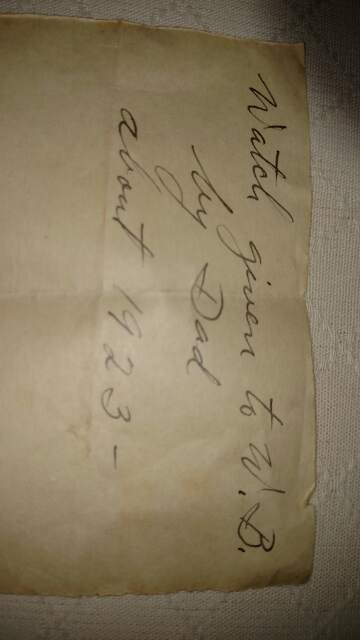 Watch given to W.B.
by Dad
about 1923-